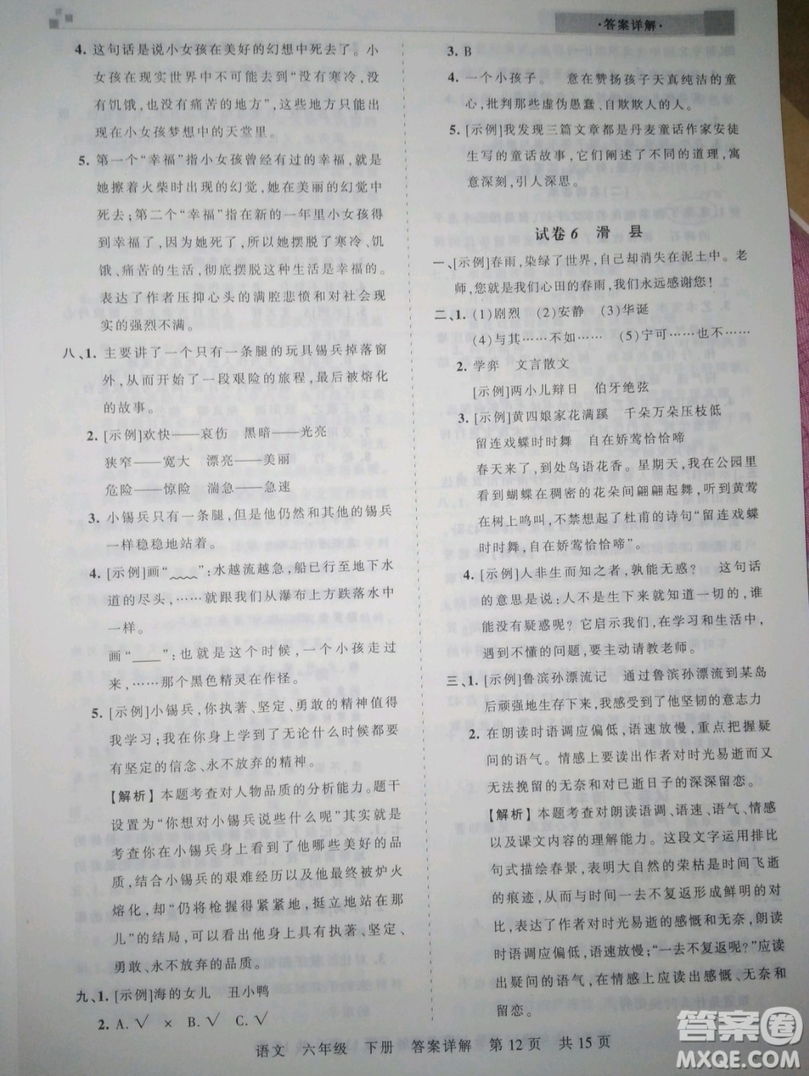 ·答案详解·
4. 这句话是说小女孩在美好的幻想中死去了。小
女孩在现实世界中不可能去到“没有寒冷,没
有饥饿,也没有痛苦的地方”,这些地方只能出
现在小女孩梦想中的天堂里。
5. 第一个“幸福”指小女孩曾经有过的幸福,就是
她擦着火柴时出现的幻觉,她在美丽的幻想中
死去;第二个“幸福”指在新的一年里小女孩得
到的幸福,因为她死了,所以她摆脱了寒冷、饥
饿、痛苦的生活,彻底摆脱了这悲惨的境地。
表达了作者压抑心头的满腔悲愤和对社会现实
的强烈不满。
八、1. 主要讲了一个只有一条腿的玩具锡兵掉落窗
外,从而开始了一段艰险的旅程,最后被熔化
的故事。
2. [示例]欢快——哀伤 黑暗——光亮
狭窄——宽大 漂亮——美丽
危险——惊险 湍急——急速
3. 小锡兵只有一条腿,但是他仍然和其他的锡兵
一样稳稳地站着。
4. [示例]画“﹏﹏”:水越流越急,船已行至地下水
道的尽头,……就跟我们从瀑布上方跌落水中
一样。
画“____”:也就是这个时候,一个小孩走过
来,……那个黑色精灵在作怪。
5. [示例]小锡兵,你执著、坚定、勇敢的精神值得
我学习;我在你身上学到了无论什么时候都要
有坚定的信念、永不放弃的精神。
【解析】本题考查对人物品质的分析能力。题干
设置为“你想对小锡兵说些什么呢”其实就是
考查你从小锡兵身上看到了哪些让你感动的品
质,结合小锡兵的艰难经历以及最后被炉火
熔化,却“仍将枪握得紧紧地,挺立地站在那
儿”的结局,可以看出小锡兵具有执著、坚定、
勇敢、永不放弃的品质。
九、1. [示例]海的女儿 丑小鸭
2. A.√ × B.√ √ C.√ √
3. B
4. 一个小孩子。 意在赞扬孩子天真纯洁的童
心,批判那些虚伪愚蠢、自欺欺人的人。
5. [示例]我发现三篇文章都是丹麦童话作家安徒
生写的童话故事,它们阐述了不同的道理,寓
意深刻,引人深思。
试卷6 滑县
一、[示例]春雨,染绿了世界,自己却消失在泥土中。老
师,您就是我们心田的春雨,我们永远感谢您!
二、1. (1)剧烈 (2)安静 (3)华诞
(4)与其……不如…… (5)宁可……也不……
2. 学弈 文言散文
[示例]两小儿辩日 伯牙绝弦
3. [示例]黄四娘家花满蹊 千朵万朵压枝低
留连戏蝶时时舞 自在娇莺恰恰啼
春天来了,到处鸟语花香。星期天,我在公园里
看到蝴蝶在稠密的花朵间翩翩起舞,看到黄莺
在树上鸣叫,不禁想起了杜甫的诗句“留连戏蝶
时时舞,自在娇莺恰恰啼”。
4. [示例]人非生而知之者,孰能无惑? 这句话
的意思是说:人不是生下来就知道一切的,谁能
没有疑惑呢?它启示我们,在学习和生活中,
遇到不懂的问题,要主动请教老师。
三、1. [示例]鲁滨孙漂流记 通过鲁滨孙漂流到某岛
后顽强地生存下来,我感受到了他坚韧的意志力
2. 在朗读时语调应偏低,语速放慢,重点把握疑
问的语气。情感上要读出作者对时光易逝而
无法挽留的无奈和对已逝日子的深深留恋。
【解析】本题考查对朗读语调、语速、语气、情感
以及课文内容的理解能力。这段文字运用排比
句式描绘春天景象,表达了自然的荣枯是时间飞逝
的痕迹,并与时间一去不复返形成鲜明的对
比,表达了作者对时光易逝的感慨和无奈,朗读
时语调应偏低,语速放慢,“一去不复返呢?”应读
出疑问的语气,在情感上应读出感慨、无奈和
留恋。
语文 六年级 下册 答案详解 第12页 共15页
答案圈
MXQE.COM